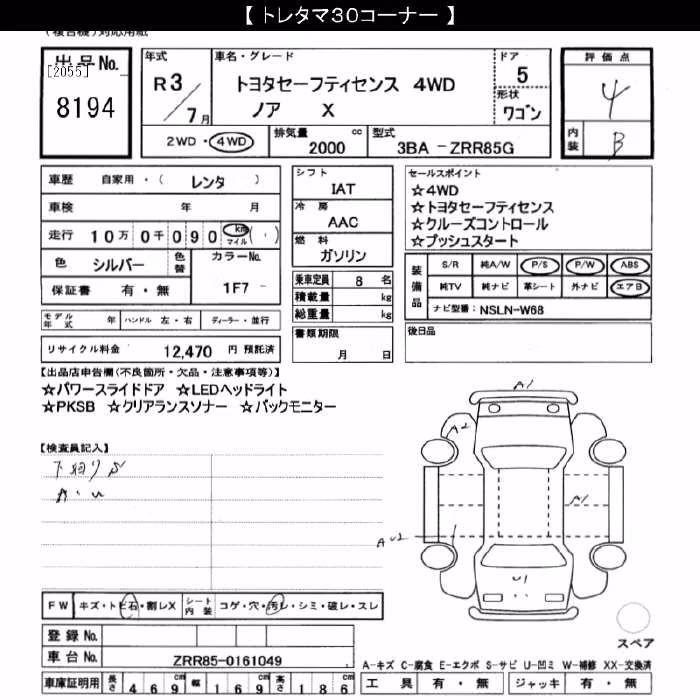 【 トレタマ30コーナー 】
(複合機)対応用紙
出品No. [2055] 8194
年式 R3/7月
車名・グレード トヨタセーフティセンス 4WD
ノア X
ドア 5
形状 ワゴン
評価点 4
内装 B
2WD・4WD 排気量 2000 cc 型式 3BA -ZRR85G
車歴 自家用・( レンタ )
車検 年 月
走行 10万0千090 km マイル ( )
色 シルバー 色替 カラーNo. 1F7
保証書 有・無
モデル年式 年 ハンドル 左・右 ディーラー・並行
リサイクル料金 12,470 円 預託済
シフト IAT
冷房 AAC
燃料 ガソリン
乗車定員 8 名
積載量 kg
総重量 kg
書類期限 月 日
セールスポイント
☆4WD
☆トヨタセーフティセンス
☆クルーズコントロール
☆プッシュスタート
装備品 S/R 純A/W P/S P/W ABS
純TV 純ナビ 革シート 外ナビ エアB
ナビ型番: NSLN-W68
後日品
【出品店申告欄(不良箇所・欠品・注意事項等)】
☆パワースライドドア ☆LEDヘッドライト
☆PKSB ☆クリアランスソナー ☆バックモニター
【検査員記入】
下廻りS
A・U
A1
A2
A1
AU2
U1
FW キズ・トビ石・割レX シート内装 コゲ・穴・汚レ・シミ・破レ・スレ
登録No.
車台No. ZRR85-0161049
スペア
車庫証明用 長さ 469cm 幅 169cm 高さ 186cm
A-キズ C-腐食 E-エクボ S-サビ U-凹ミ W-補修 XX-交換済
工具 有・無 ジャッキ 有・無